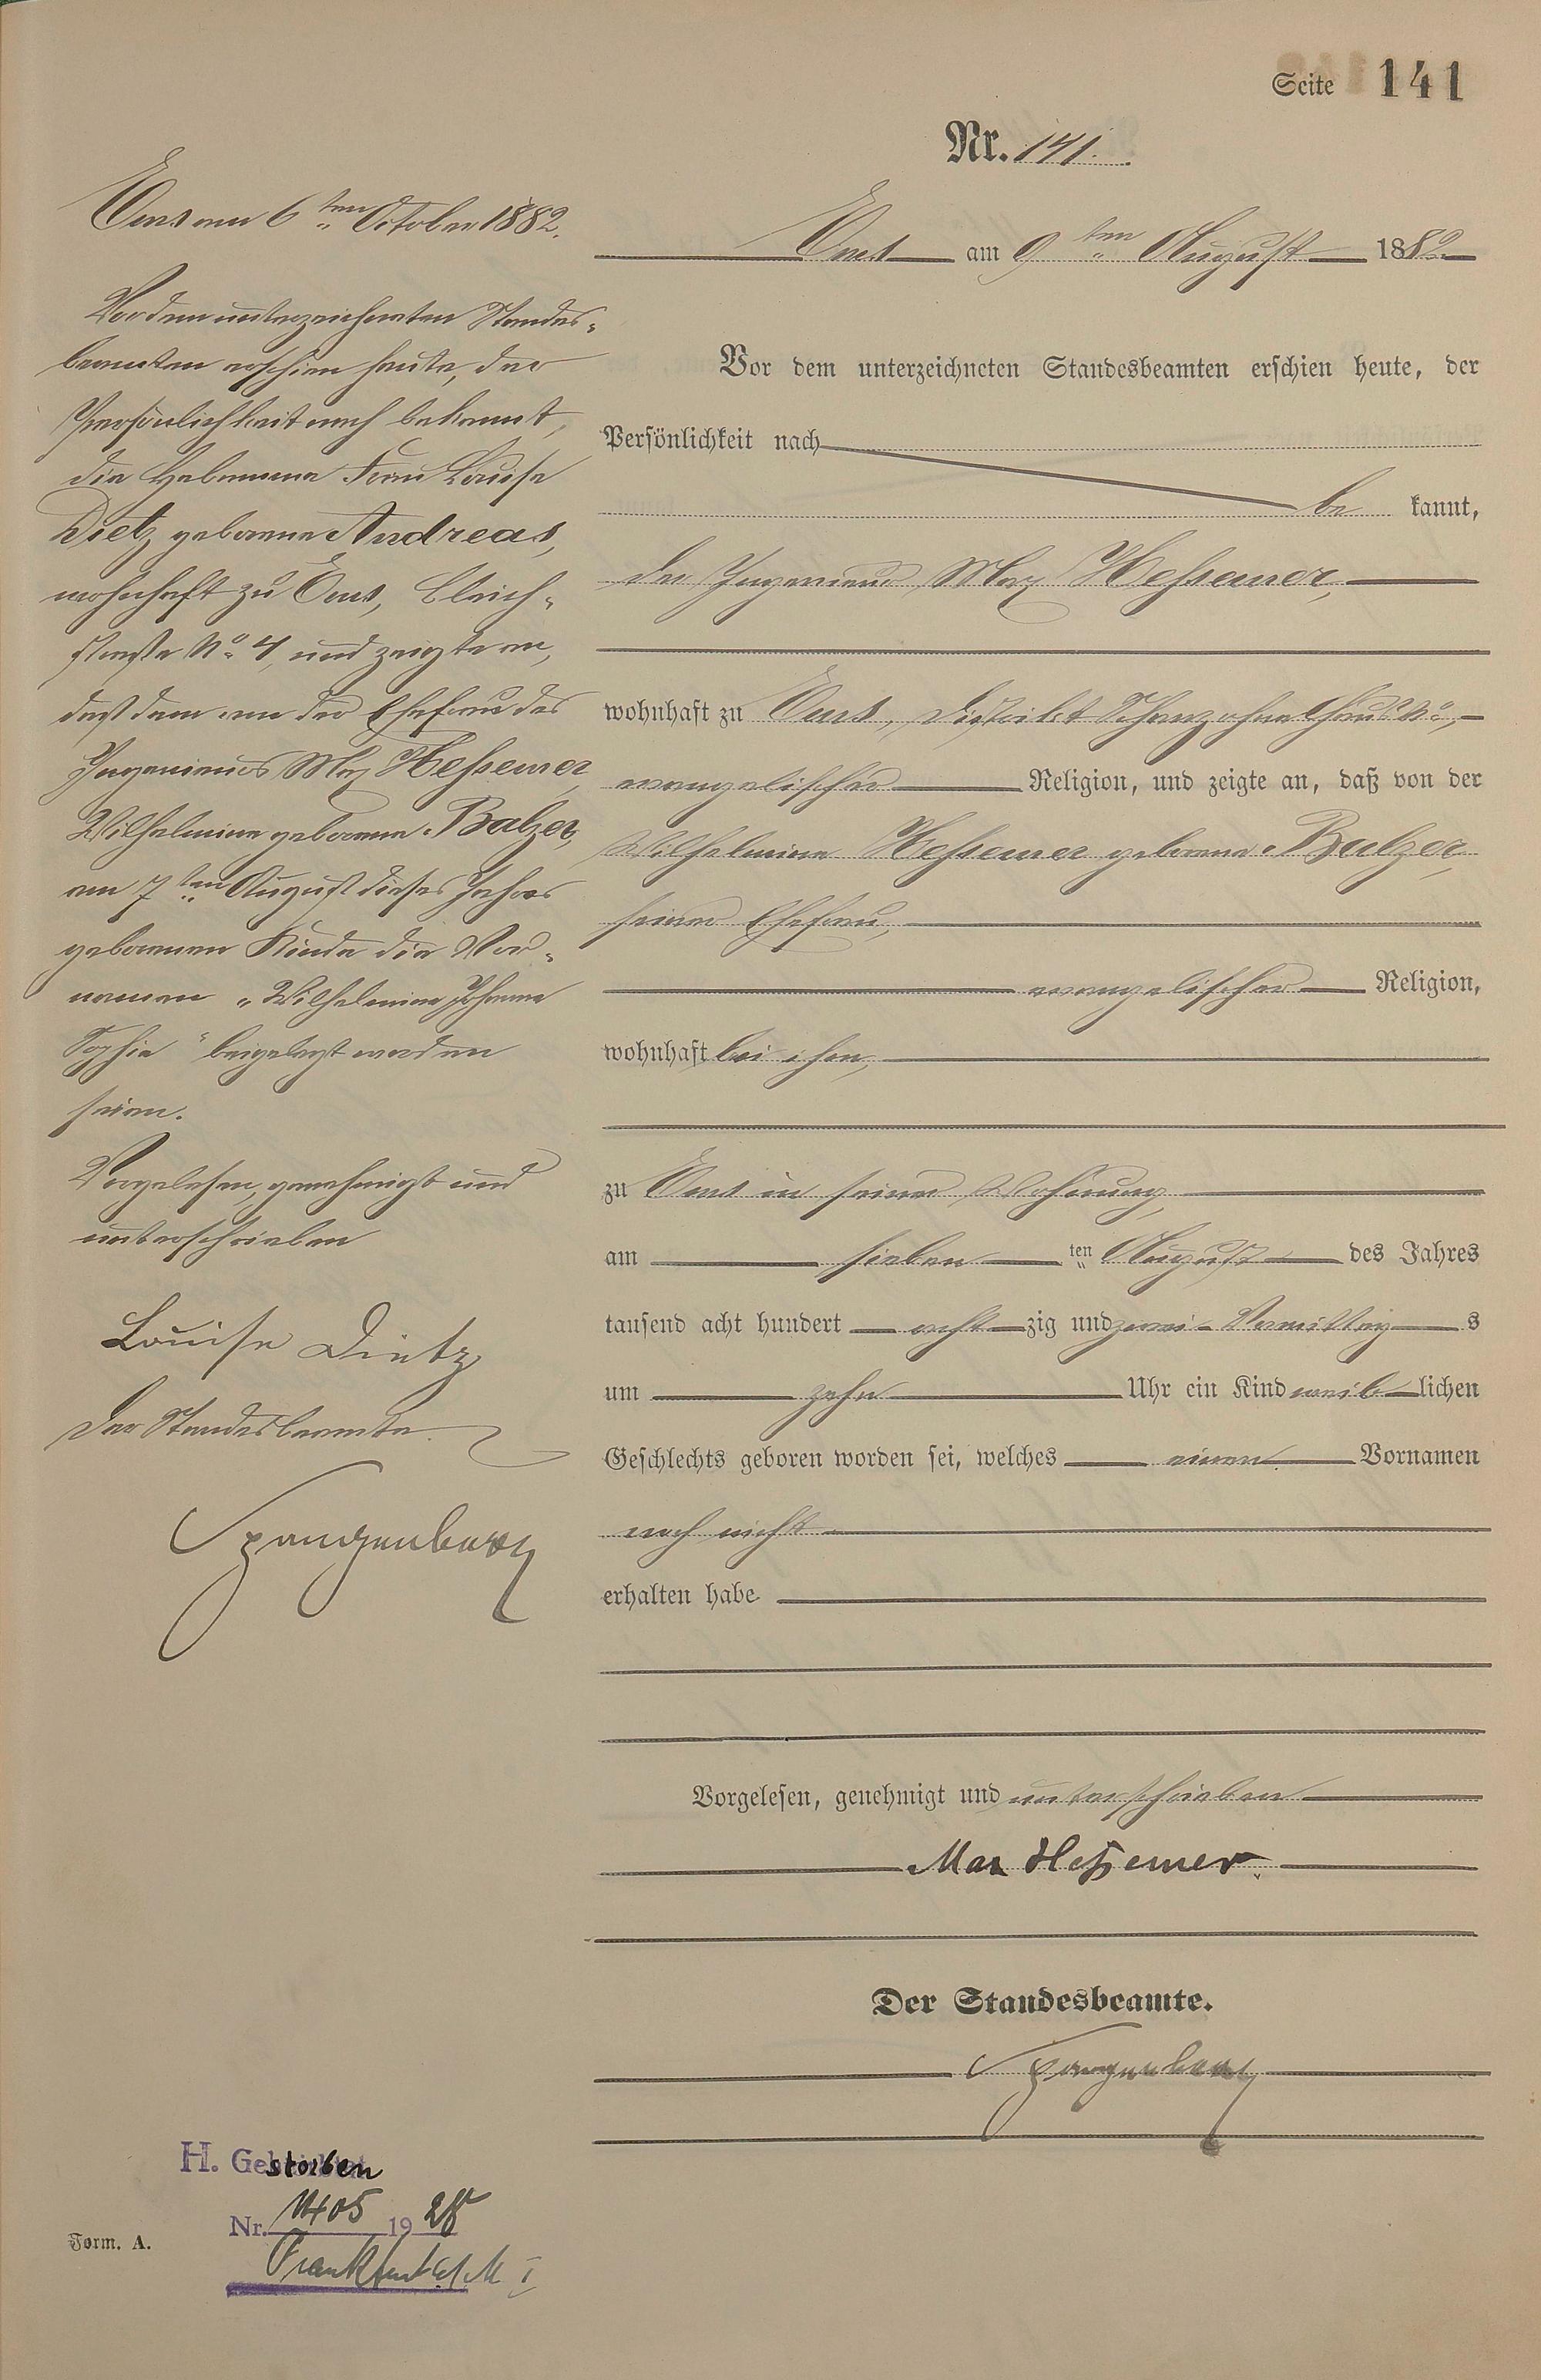 Seite 141
Nr. 141.
Ems am 9ten August 1882
Vor dem unterzeichneten Standesbeamten erschien heute, der
Persönlichkeit nach
be kannt,
der Ingenieur Max Hessemer,
wohnhaft zu Ems, Distrikt Schanz ohne Haus No,
evangelischer Religion, und zeigte an, daß von der
Wilhelmine Hessemer geborene Balzer,
seiner Ehefrau,
evangelischer Religion,
wohnhaft bei ihm,
zu Ems in seiner Wohnung,
am sieben ten August des Jahres
tausend acht hundert acht zig und zwei Vormittag s
um zehn Uhr ein Kind weib lichen
Geschlechts geboren worden sei, welches einen Vornamen
noch nicht
erhalten habe
Vorgelesen, genehmigt und unterschrieben
Max Heßemer.
Der Standesbeamte.
Spangenberg
Ems am 6ten October 1882.
Vor dem unterzeichneten Standes-
beamten erschien heute, der
Persönlichkeit nach bekannt,
die Hebamme Frau Louise
Dietz geborene Andreas,
wohnhaft zu Ems, Bleich-
straße No 4, und zeigte an,
daß dem von der Ehefrau des
Ingenieurs Max Hessemer,
Wilhelmine geborene Balzer,
am 7ten August dieses Jahres
geborenen Kinde die Vor-
namen „Wilhelmine Johanna
Sophie“ beigelegt worden
seien.
Vorgelesen, genehmigt und
unterschrieben
Louise Dietz
Der Standesbeamte.
Spangenberg
H. Gestorben
Nr. 1405 1928
Frankfurt a/M I
Form. A.